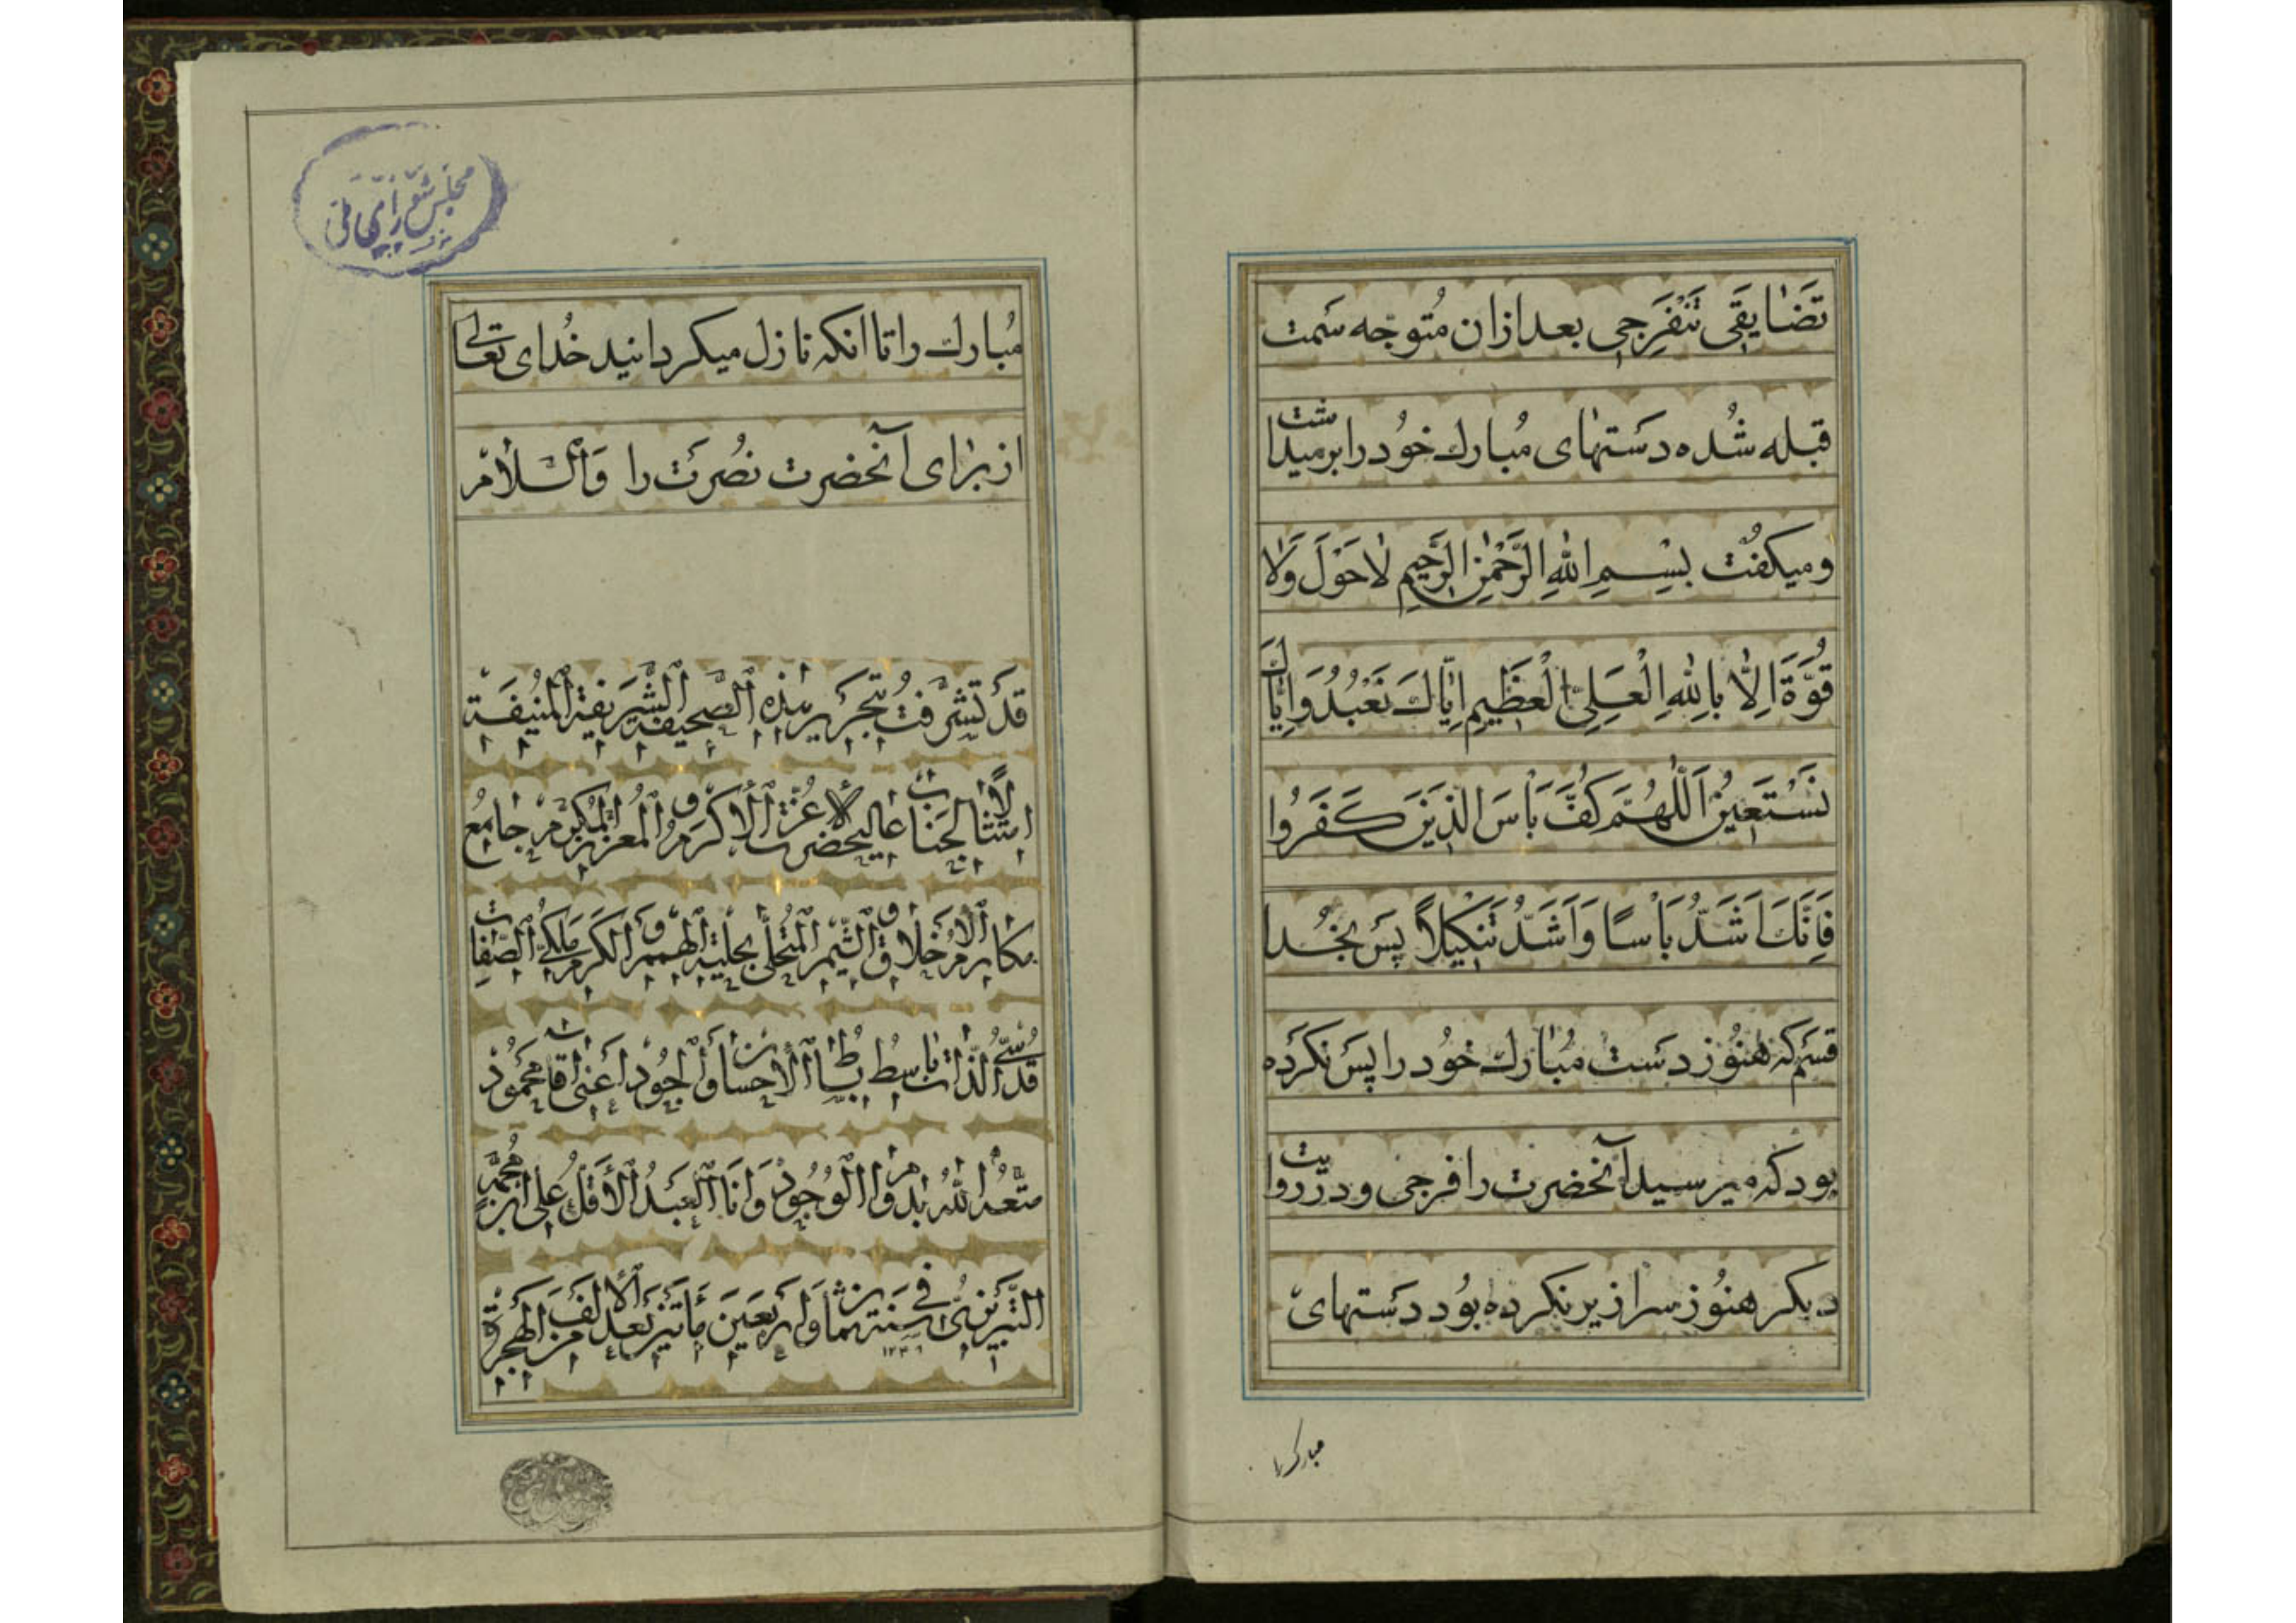 تَضٰایَقَی تَنْفَرِجی بعد ازان مُتوجّه سَمت
قبله شُده دستهٰای مُبارك خوُد را برمیداشت
ومیکفُت بِسْمِ اللهِ الرَّحْمٰنِ الرَّحیمِ لاٰحَوْلَ وَلاٰ
قُوَّةَ اِلاّٰ بِاللهِ الْعَلِیِّ الْعَظیمِ اِیّٰاكَ نَعْبُدُ وَاِیّٰاكَ
نَسْتَعینُ اَللّٰهُمَّ كُفَّ بَاْسَ الَّذینَ كَفَرُوا
فَاِنَّكَ اَشَدُّ بَاْسًا وَاَشَدُّ تَنْكیلاً پس بخُدا
قسَم که هنوُز دَست مُبٰارك خوُد را پَسَ نکرَده
بود که میرسید آنحضرت را فرجی و در روایت
دیکر هنوُز سرازیر نکرده بوُد دَستهای
مبارکرا
مُبارك را تا انکه نازل میکردانید خُدای تعالی
از برٰای آنحضرت نصُرتَ را وَالسّلاٰمْ
قَدْ تَشَرَّفْتُ بِتَحْریرِ هٰذِهِ الصَّحیفَةِ الشَّریفَةِ الْمُنیفَةِ
امتثالاً لجناب عالیحضرت الاعزّ الاکرم و المعزّز المکرّم جامع
مکارم الاخلاق و الشّیم المتحلّی بحلیة الهمم و الکرم ملکیّ الصّفات
قدسیّ الذّات باسط بساط الاحسان و الجود اعنی اقا محمود
متّعه الله بدوام الوجود وَاَنَا العَبدُ الأقلّ علی ابن محمد
التبریزیّ فی سنة ثمان و اربعین مأتین بعد الالف من الهجرة
مجلس شورای ملی